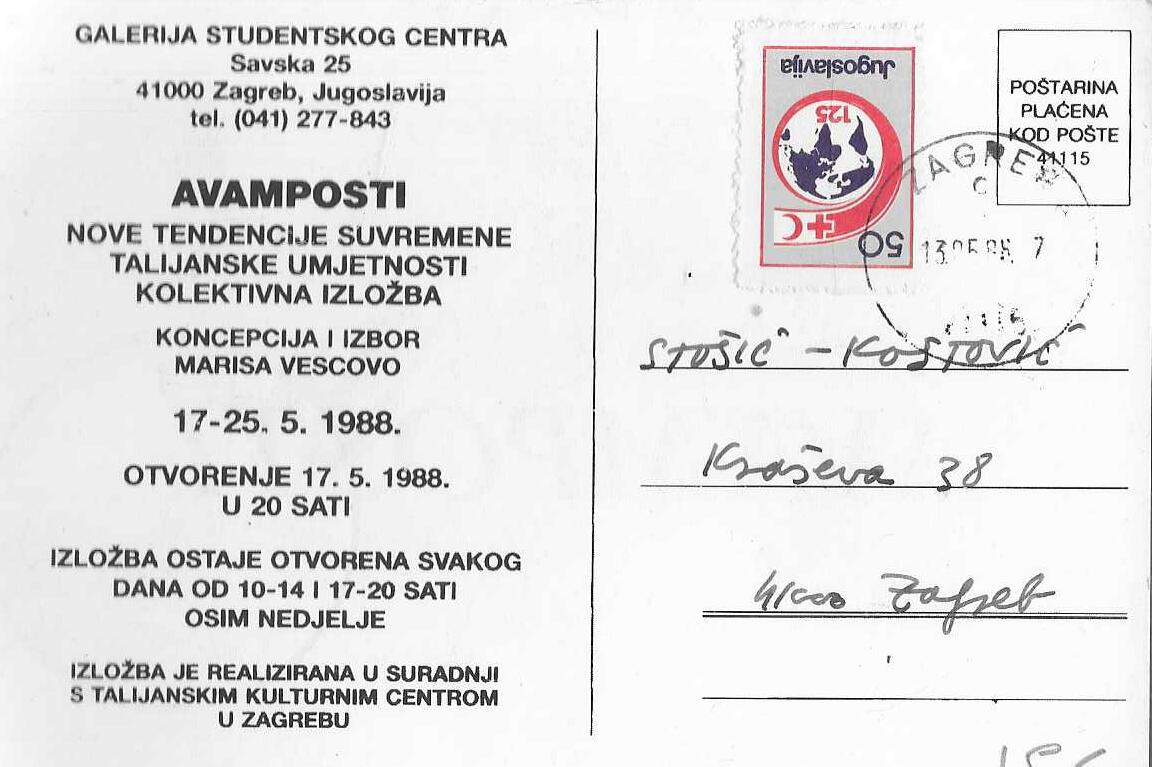 GALERIJA STUDENTSKOG CENTRA
Savska 25
41000 Zagreb, Jugoslavija
tel. (041) 277-843
AVAMPOSTI
NOVE TENDENCIJE SUVREMENE
TALIJANSKE UMJETNOSTI
KOLEKTIVNA IZLOŽBA
KONCEPCIJA I IZBOR
MARISA VESCOVO
17-25. 5. 1988.
OTVORENJE 17. 5. 1988.
U 20 SATI
IZLOŽBA OSTAJE OTVORENA SVAKOG
DANA OD 10-14 I 17-20 SATI
OSIM NEDJELJE
IZLOŽBA JE REALIZIRANA U SURADNJI
S TALIJANSKIM KULTURNIM CENTROM
U ZAGREBU
Jugoslavija
125
50
POŠTARINA
PLAĆENA
KOD POŠTE
41115
ZAGREB
STOŠIĆ - KOŠTOVIĆ
Kraševa 38
41000 Zagreb